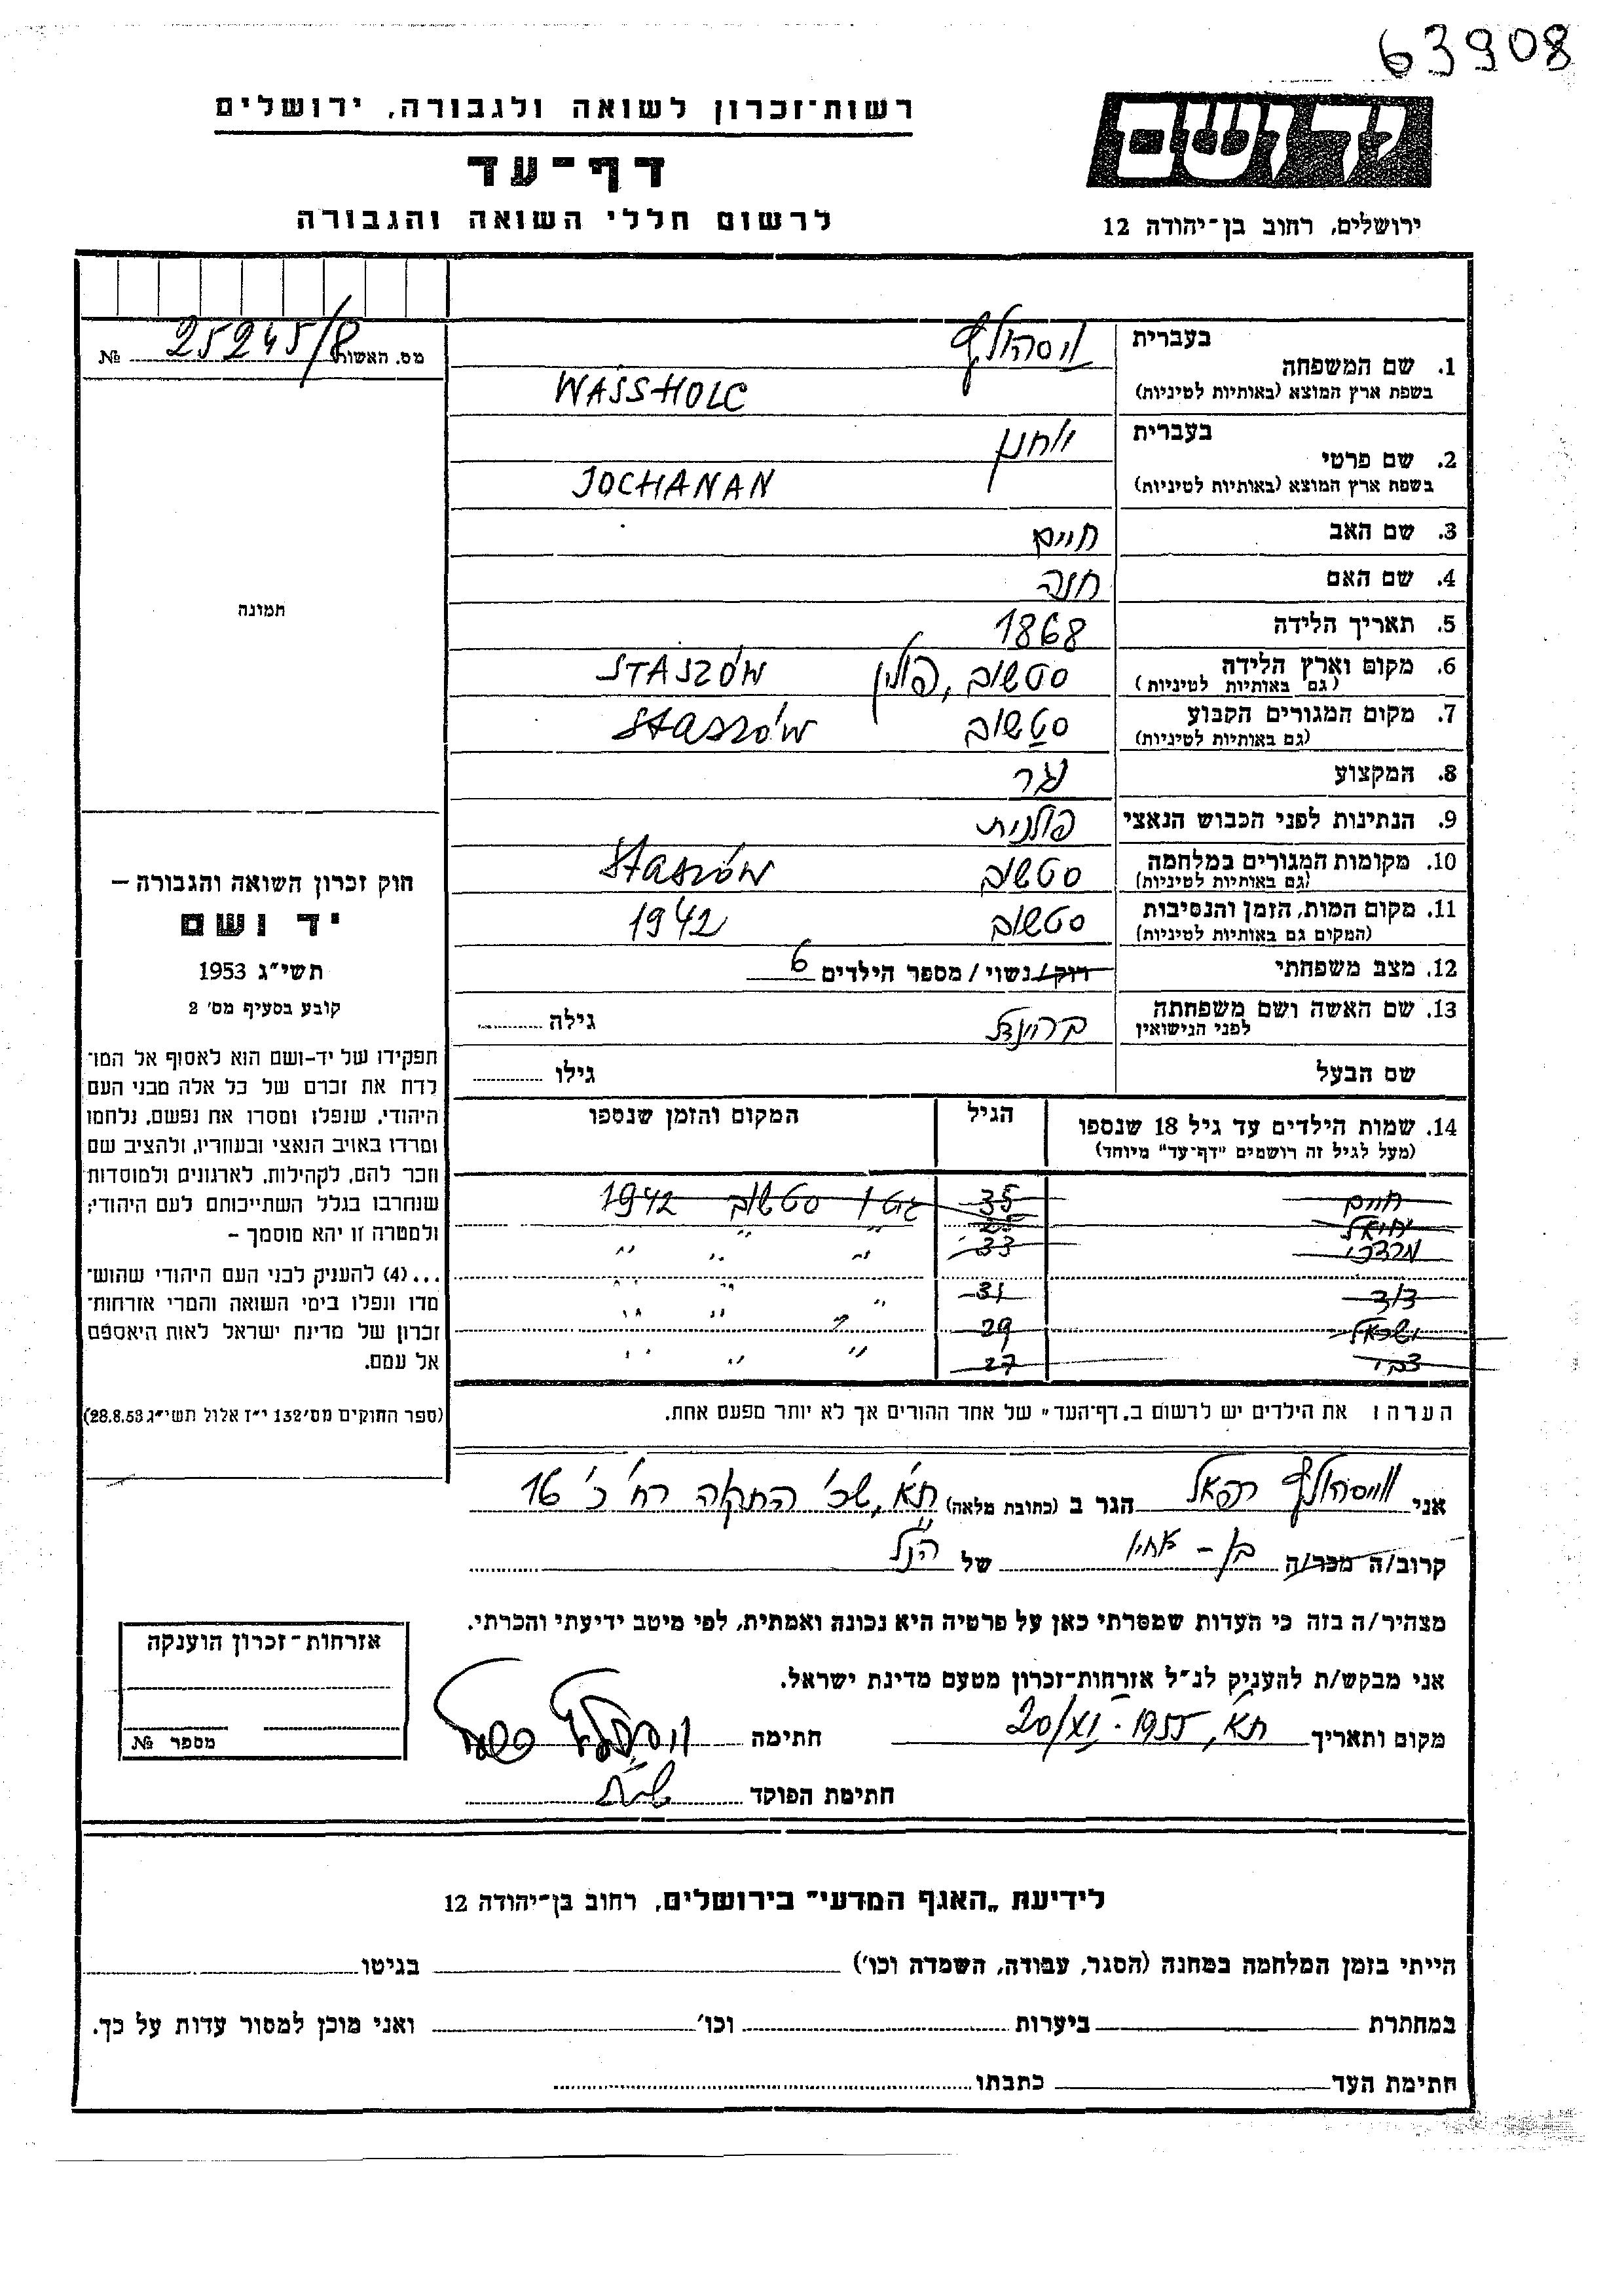 63908
רשות־זכרון לשואה ולגבורה, ירושלים
דף־עד
לרשום חללי השואה והגבורה
ידושם
ירושלים, רחוב בן־יהודה 12
מס. האשור 25245/8 №
תמונה
חוק זכרון השואה והגבורה —
יד ושם
תשי״ג 1953
קובע בסעיף מס׳ 2
תפקידו של יד-ושם הוא לאסוף אל המו־
לדת את זכרם של כל אלה מבני העם
היהודי, שנפלו ומסרו את נפשם, נלחמו
ומרדו באויב הנאצי ובעוזריו, ולהציב שם
וזכר להם, לקהילות, לארגונים ולמוסדות
שנחרבו בגלל השתייכותם לעם היהודי;
ולמטרה זו יהא מוסמך –
...(4) להעניק לבני העם היהודי שהוש־
מדו ונפלו בימי השואה והמרי אזרחות־
זכרון של מדינת ישראל לאות היאספם
אל עמם.
(ספר החוקים מס׳ 132 י״ז אלול תשי״ג 28.8.53)
בעברית וסהולץ
1. שם המשפחה
בשפת ארץ המוצא (באותיות לטיניות) WASSHOLC
בעברית יוחנן
2. שם פרטי
בשפת ארץ המוצא (באותיות לטיניות) JOCHANAN
3. שם האב חיים
4. שם האם חנה
5. תאריך הלידה 1868
6. מקום וארץ הלידה סטשוב, פולין STASZÓW
(גם באותיות לטיניות)
7. מקום המגורים הקבוע סטשוב Staszów
(גם באותיות לטיניות)
8. המקצוע נגר
9. הנתינות לפני הכבוש הנאצי פולנית
10. מקומות המגורים במלחמה סטשוב Staszów
(גם באותיות לטיניות)
11. מקום המות, הזמן והנסיבות סטשוב 1942
(המקום גם באותיות לטיניות)
12. מצב משפחתי רוק / נשוי / מספר הילדים 6
13. שם האשה ושם משפחתה בריינדל גילה
לפני הנישואין
שם הבעל גילו
14. שמות הילדים עד גיל 18 שנספו הגיל המקום והזמן שנספו
(מעל לגיל זה רושמים "דף־עד" מיוחד)
חיים 35 גטו סטשוב 1942
יחיאל " "
מרדכי 33 " " "
דוד 31 " " "
ישראל 29 " " "
צבי 27 " " "
הערה: את הילדים יש לרשום ב„דף־העד" של אחד ההורים אך לא יותר מפעם אחת.
אני ווסהולץ רפאל הגר ב (כתובת מלאה) ת״א, שכ׳ התקוה רח׳ כ׳ 16
קרוב/ה מכר/ה בן - אחיו של הנ״ל
מצהיר/ה בזה כי העדות שמסרתי כאן על פרטיה היא נכונה ואמתית, לפי מיטב ידיעתי והכרתי.
אני מבקש/ת להעניק לנ״ל אזרחות-זכרון מטעם מדינת ישראל.
מקום ותאריך ת״א, 20/XI - 1955 חתימה ווסהולץ רפאל
חתימת הפוקד
אזרחות-זכרון הוענקה
מספר №
לידיעת „האגף המדעי" בירושלים, רחוב בן־יהודה 12
הייתי בזמן המלחמה במחנה (הסגר, עבודה, השמדה וכו׳) בגיטו
במחתרת ביערות וכו׳ ואני מוכן למסור עדות על כך.
חתימת העד כתבתו